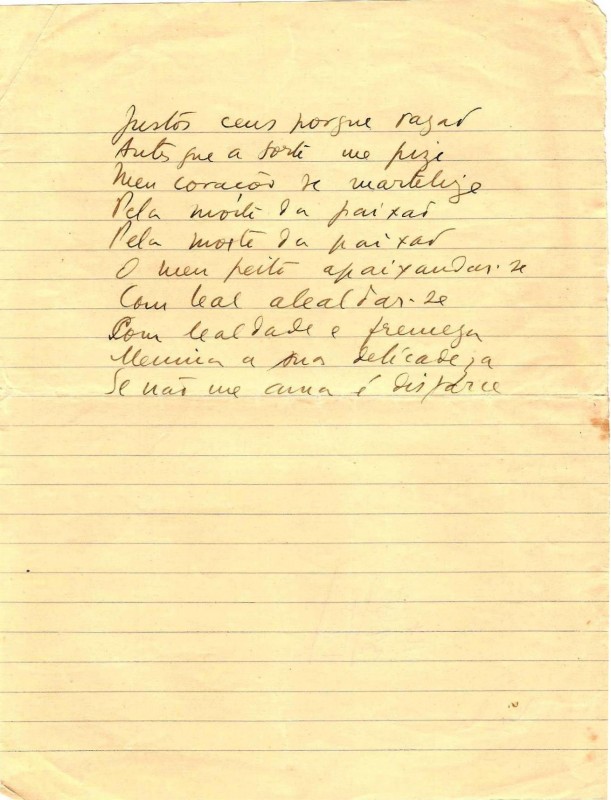 Justos ceus porque razão
Antes que a sorte me pize
Meu coração se martelize
Pela morte da paixão
Pela morte da paixão
O meu peito apaixandar-se
Com leal alealdar-se
Com lealdade e fremeza
Menina a sua delicadeza
Se não me ama é disfarce